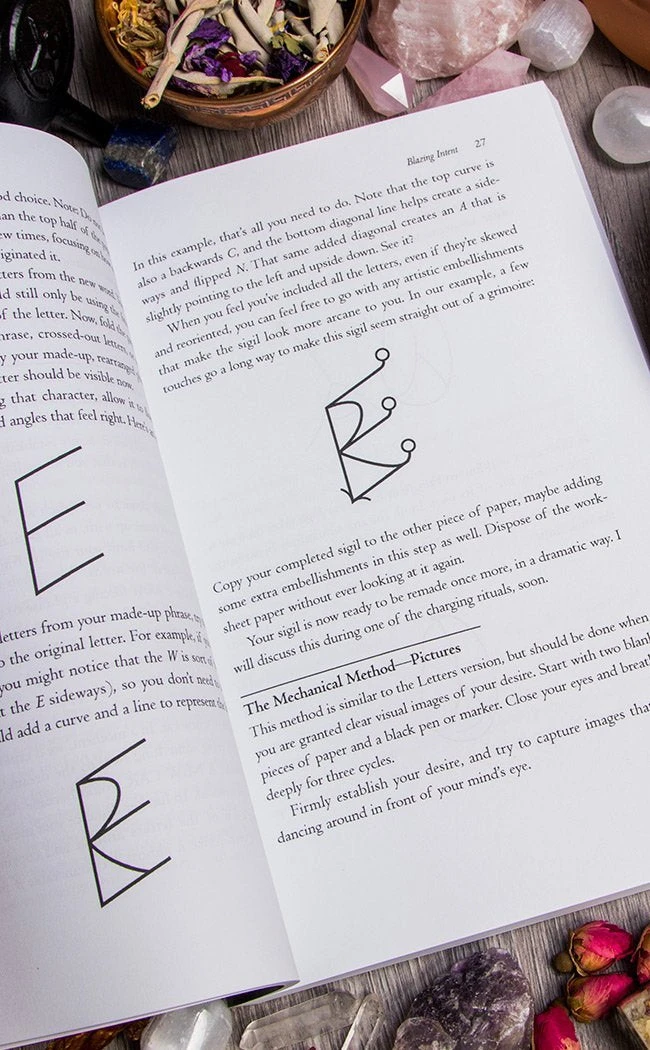 d choice. Note: Do
an the top half of the
ew times, focusing on
iginated it.
tters from the new word,
ld still only be using the
of the letter. Now, fold the
hrase, crossed-out letters,
y your made-up, rearranged
tter should be visible now.
g that character, allow it to
d angles that feel right. Here's
E
letters from your made-up phrase,
o the original letter. For example, if
you might notice that the W is sort of
t the E sideways), so you don't need
ld add a curve and a line to represent
Blazing Intent 27
In this example, that's all you need to do. Note that the top curve is
also a backwards C, and the bottom diagonal line helps create a side-
ways and flipped N. That same added diagonal creates an A that is
slightly pointing to the left and upside down. See it?
When you feel you've included all the letters, even if they're skewed
and reoriented, you can feel free to go with any artistic embellishments
that make the sigil look more arcane to you. In our example, a few
touches go a long way to make this sigil seem straight out of a grimoire:
Copy your completed sigil to the other piece of paper, maybe adding
some extra embellishments in this step as well. Dispose of the work-
sheet paper without ever looking at it again.
Your sigil is now ready to be remade once more, in a dramatic way. I
will discuss this during one of the charging rituals, soon.
The Mechanical Method—Pictures
This method is similar to the Letters version, but should be done when
you are granted clear visual images of your desire. Start with two blank
pieces of paper and a black pen or marker. Close your eyes and breath
deeply for three cycles.
Firmly establish your desire, and try to capture images that
dancing around in front of your mind's eye.